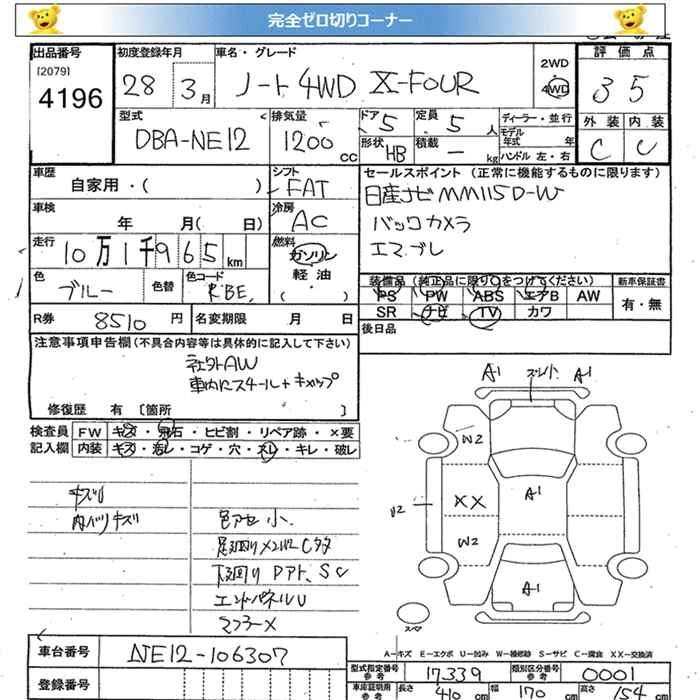 完全ゼロ切りコーナー
出品番号
[2079]
4196
初度登録年月
28 3月
車名・グレード
ノート 4WD X-FOUR
2WD
4WD
評価点
3 5
型式
DBA-NE12
排気量
1200 cc
ドア 5
定員 5 人
形状 HB
積載 - kg
ディーラー・並行
モデル年式 年
ハンドル 左・右
外装 内装
C C
車歴
自家用・( )
シフト
FAT
セールスポイント(正常に機能するものに限ります)
日産ナビ MM115D-W
バックカメラ
エマブレ
車検
年 月( 日)
冷房
AC
走行
10万1千965km
燃料
ガソリン
軽油・
( )
色
ブルー
色替
色コード
RBE
装備品(装正品に限り○をつけてください)
PS PW ABS エアB AW
SR ナビ TV カワ
新車保証書
有・無
R券 8510円
名変期限 月 日
後日品
注意事項申告欄(不具合内容等は具体的に記入して下さい)
社外AW
車内にスチール+キャップ
修復歴 有 [箇所 ]
検査員
記入欄
FW キズ・飛石・ヒビ割・リペア跡・×要
内装 キズ・汚レ・コゲ・穴・ネレ・キレ・破レ
内ハリキズ
色アセ小.
足廻りメンバーCタタ
下廻りPアト、SC
エンドパネルU
マフラーX
A1 A1
W2
U2
XX
A1
W2
A1
スペア
A-キズ E-エクボ U-凹み W-補修跡 S-サビ C-腐食 XX-交換済
車台番号 NE12-106307
登録番号
型式指定番号
参考
17339
類別区分番号
参考
0001
車庫証明用
参考
長さ 410 cm
幅 170 cm
高さ 154 cm